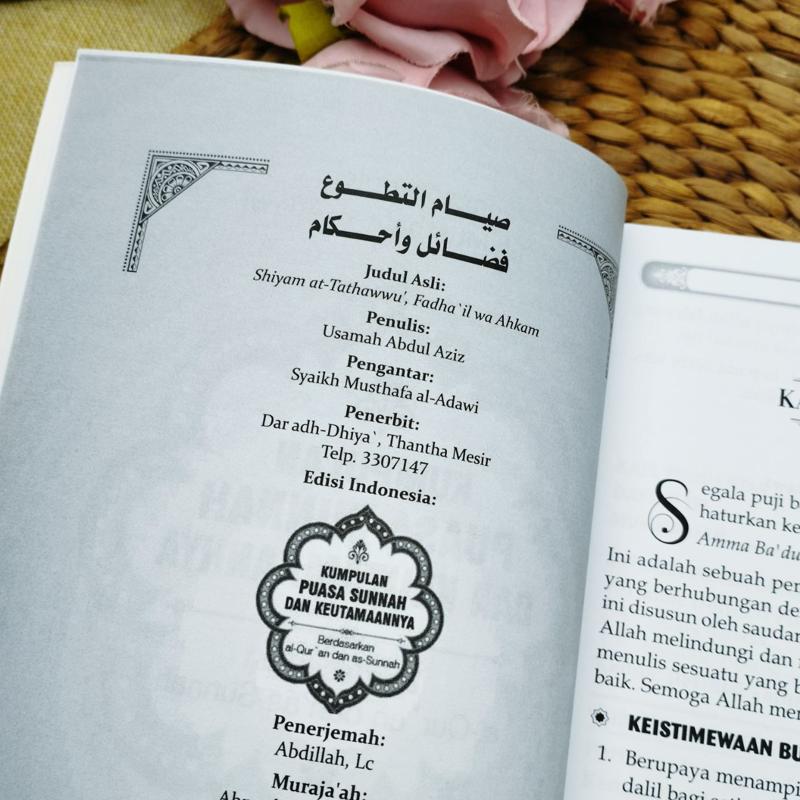 صيـــام التطـــوع
فضـــائل وأحـــكام
Judul Asli:
Shiyam at-Tathawwu', Fadha`il wa Ahkam
Penulis:
Usamah Abdul Aziz
Pengantar:
Syaikh Musthafa al-Adawi
Penerbit:
Dar adh-Dhiya`, Thantha Mesir
Telp. 3307147
Edisi Indonesia:
KUMPULAN
PUASA SUNNAH
DAN KEUTAMAANNYA
Berdasarkan
al-Qur`an dan as-Sunnah
Penerjemah:
Abdillah, Lc
Muraja'ah:
Segala puji
haturkan
Amma Ba'du
Ini adalah sebuah
yang berhubungan
ini disusun oleh
Allah melindungi dan
menulis sesuatu yang
baik. Semoga Allah
KEISTIMEWAAN
1. Berupaya
dalil bagi